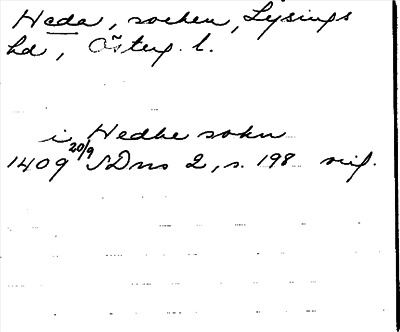 Heda, socken, Lysings
hd, Österg. l.
i Hedhe sokn
1409 20/9 SDns 2, s. 198 orig.